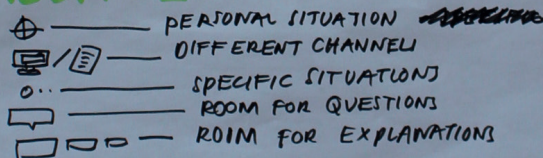 PERSONAL SITUATION
DIFFERENT CHANNELS
SPECIFIC SITUATIONS
ROOM FOR QUESTIONS
ROIM FOR EXPLANATIONS